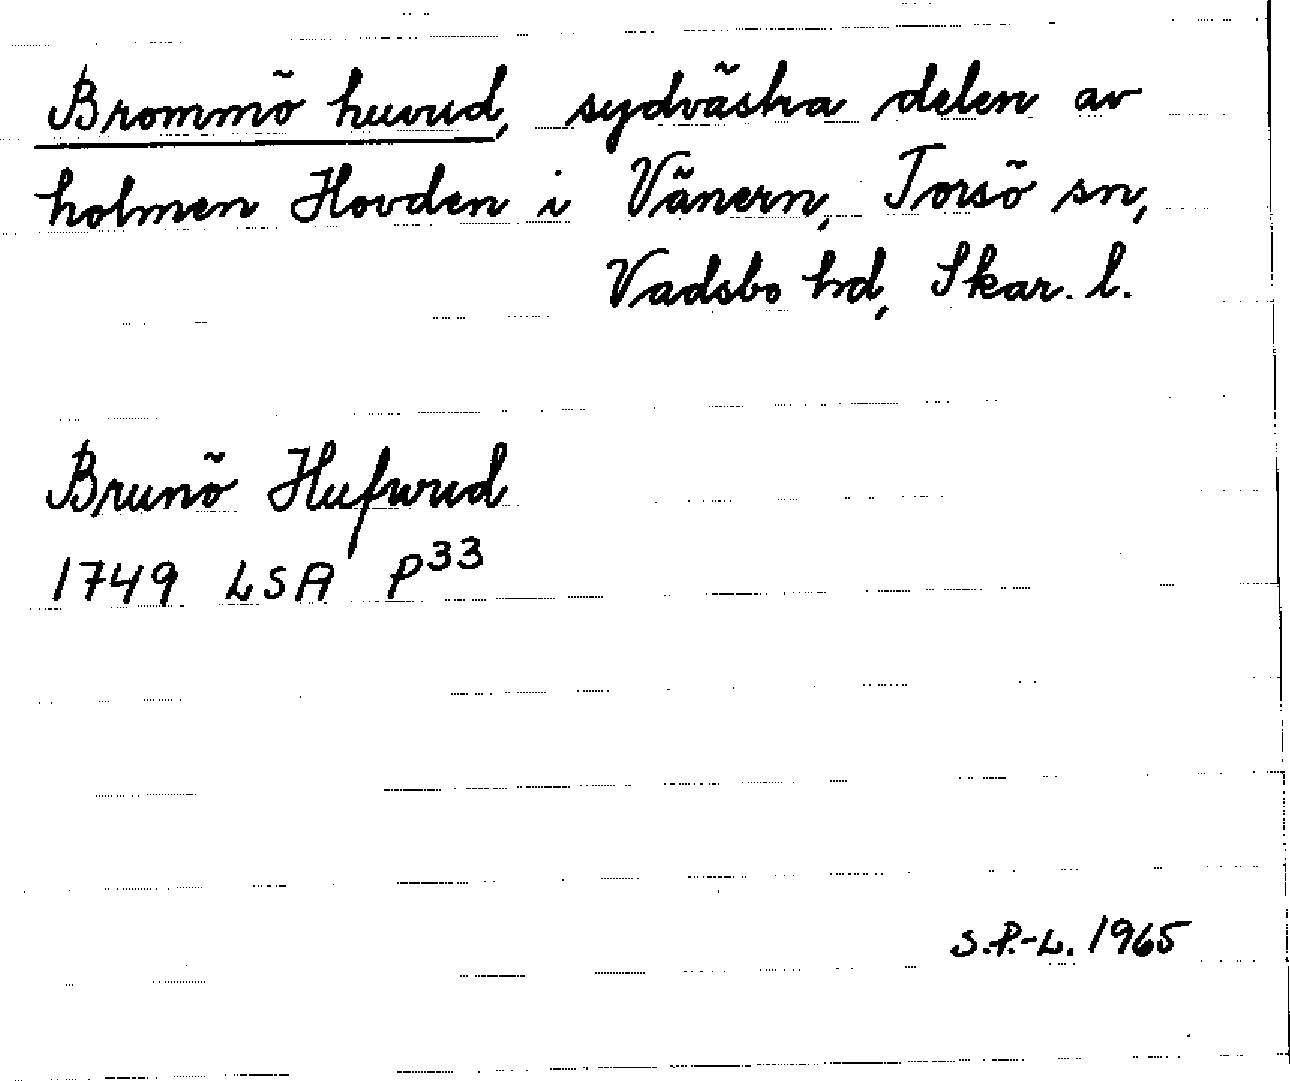 Brommö huvud, sydvästra delen av
holmen Hovden i Vänern, Torsö sn,
Vadsbo hd, Skar. l.
Brunö Hufwud
1749 LSA P33
S.P.-L. 1965